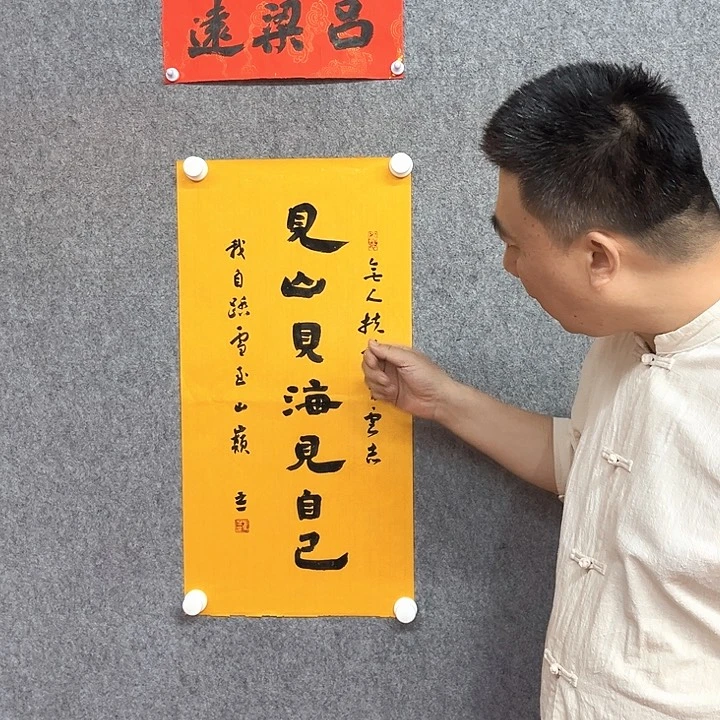 吕梁遠
無人扶雲志
見山見海見自己
我自踏雪至山巔